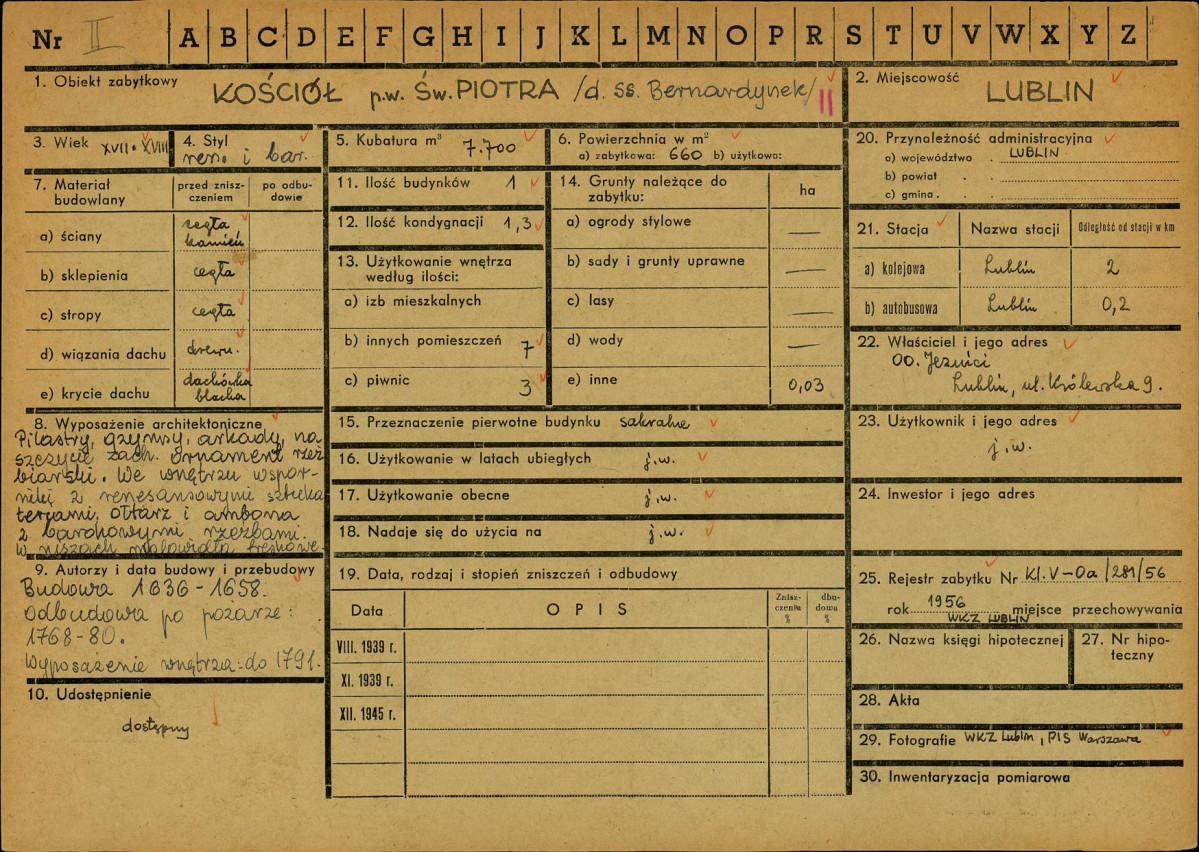 Nr II A B C D E F G H I J K L M N O P R S T U V W X Y Z
1. Obiekt zabytkowy
KOŚCIÓŁ p.w. ŚW. PIOTRA /d. ss. Bernardynek/ II
2. Miejscowość
LUBLIN
3. Wiek XVII. XVIII
4. Styl
ren. i bar.
5. Kubatura m³
7.700
6. Powierzchnia w m²
a) zabytkowa: 660 b) użytkowa:
20. Przynależność administracyjna
a) województwo LUBLIN
b) powiat
c) gmina
7. Materiał budowlany
przed zniszczeniem
po odbudowie
a) ściany
cegła
kamień
b) sklepienia
cegła
c) stropy
cegła
d) wiązania dachu
drewn.
e) krycie dachu
dachówka
blacha
11. Ilość budynków 1
12. Ilość kondygnacji 1,3
13. Użytkowanie wnętrza
według ilości:
a) izb mieszkalnych
b) innych pomieszczeń 7
c) piwnic 3
14. Grunty należące do
zabytku:
ha
a) ogrody stylowe —
b) sady i grunty uprawne —
c) lasy —
d) wody —
e) inne 0,03
21. Stacja
Nazwa stacji
Odległość od stacji w km
a) kolejowa Lublin 2
b) autobusowa Lublin 0,2
22. Właściciel i jego adres
OO. Jezuici
Lublin, ul. Królewska 9.
8. Wyposażenie architektoniczne
Pilastry, gzymsy, arkady, na
szczycie zach. ornament rzeź
biarski. We wnętrzu wspor-
niki z renesansowymi sztuka
teriami, ołtarz i ambona
z barokowymi rzeźbami.
W niszach malowidła freskowe.
9. Autorzy i data budowy i przebudowy
Budowa 1636-1658.
Odbudowa po pożarze:
1768-80.
Wyposażenie wnętrza: do 1791.
10. Udostępnienie
dostępny
15. Przeznaczenie pierwotne budynku sakralne
16. Użytkowanie w latach ubiegłych j.w.
17. Użytkowanie obecne j.w.
18. Nadaje się do użycia na j.w.
19. Data, rodzaj i stopień zniszczeń i odbudowy
Data
OPIS
Zniszczeniu %
dbudowa %
VIII. 1939 r.
XI. 1939 r.
XII. 1945 r.
23. Użytkownik i jego adres
j.w.
24. Inwestor i jego adres
25. Rejestr zabytku Nr Kl.V-Oa/281/56
rok 1956 miejsce przechowywania
WKZ LUBLIN
26. Nazwa księgi hipotecznej
27. Nr hipo-
teczny
28. Akta
29. Fotografie WKZ Lublin, PIS Warszawa
30. Inwentaryzacja pomiarowa